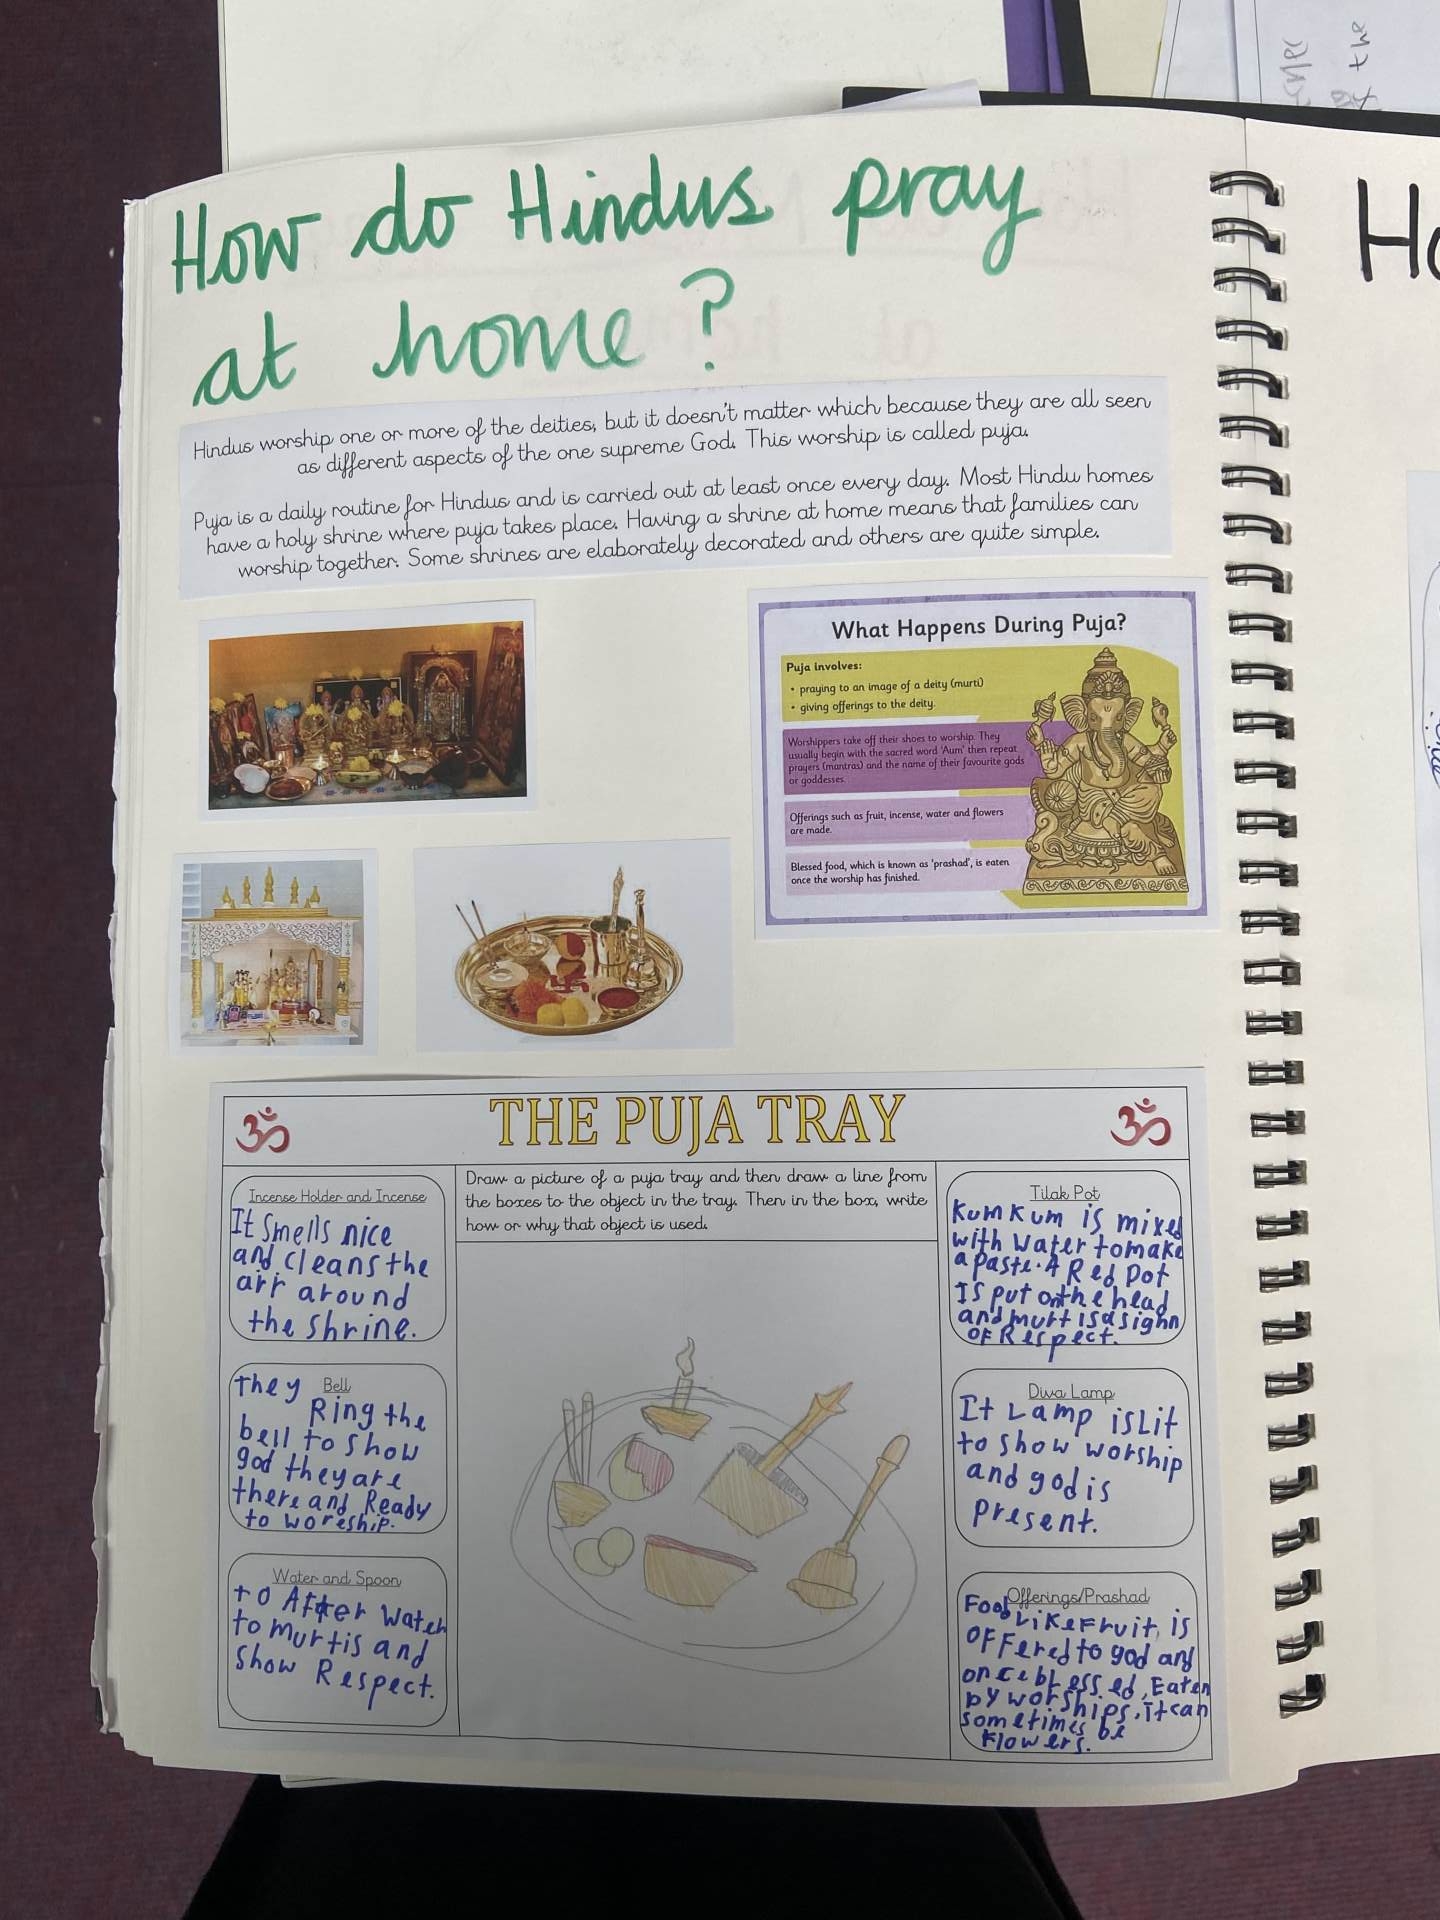 How do Hindus pray
at home?
Hindus worship one or more of the deities, but it doesn't matter which because they are all seen
as different aspects of the one supreme God. This worship is called puja.
Puja is a daily routine for Hindus and is carried out at least once every day. Most Hindu homes
have a holy shrine where puja takes place. Having a shrine at home means that families can
worship together. Some shrines are elaborately decorated and others are quite simple.
What Happens During Puja?
Puja involves:
• praying to an image of a deity (murti)
• giving offerings to the deity.
Worshippers take off their shoes to worship. They
usually begin with the sacred word 'Aum' then repeat
prayers (mantras) and the name of their favourite gods
or goddesses.
Offerings such as fruit, incense, water and flowers
are made.
Blessed food, which is known as 'prashad', is eaten
once the worship has finished.
ॐ
THE PUJA TRAY
ॐ
Incense Holder and Incense
It smells nice
and cleans the
airr around
the shrine.
Bell
They Ring the
bell to show
god theyare
there and Ready
to woreship.
Water and Spoon
to Affter Water
to murtis and
show Respect.
Draw a picture of a puja tray and then draw a line from
the boxes to the object in the tray. Then in the box, write
how or why that object is used.
Tilak Pot
Kumkum is mixed
with water tomake
a paste. A Red Dot
Is put onthe head
and murti isasighn
of Respect.
Diwa Lamp
It Lamp is Lit
to show worship
and god is
present.
Offerings/Prashad
Food Like Fruit, is
offered to god and
once blessed, Eaten
by worships, it can
sometimes be
flowers.
Ho
the